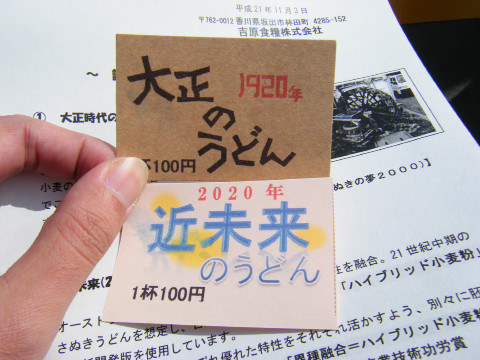 平成21年11月3日
〒762-0012 香川県坂出市林田町 4285-152
吉原食糧株式会社
～
① 大正時代の
大正 1920年
の
うどん
杯100円
ぬきの夢2000)】
小麦の
でこ
2020年
近未来
のうどん
1杯100円
未来(2
性を融合。21世紀中期の
「ハイブリッド小麦粉」
オースト
さぬきうどんを想定し、
れ優れた特性をそれぞれ活かすよう、別々に胚
開発版を使用しています。
「異種融合＝ハイブリッド小麦粉
業技術功労賞